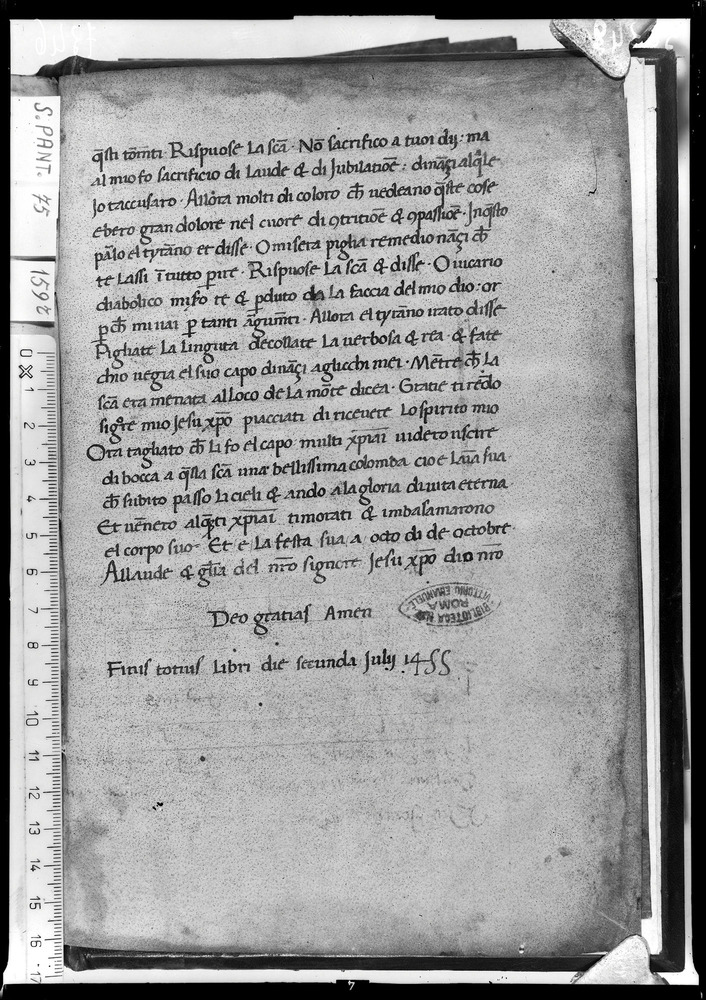 q̄sti tōm̄ti · Rispuose La sc̄a · Nō sacrifico a tuoi dij · ma
al mio fo sacrificio di Laude & di Jubilatiōe : dināçi alq̄le
Jo taccusaro · Allora molti di coloro ch̄ uedeano q̄ste cose
ebero gran dolore nel cuore di ꝯtritiōe & ꝯpassiōe · Jn q̄sto
el tyrāno et disse · O misera piglia remedio nāçi ch̄
te Lassi ī tutto ꝑire · Rispuose La sc̄a & disse · O uicario
diabolico te & ꝑduto da La faccia del mio dio : or
ꝑ ch̄ mi uai ꝑ tanti · Allora el tyrāno irato disse
Pigliate La Linguta decollate La uerbosa & rea · & fate
chio uegia el suo capo dināçi agliocchi mei · Mētre ch̄ La
sc̄a era menata al Loco de La mōte dicea · Gratie ti rēdo
mio Jesu xp̄o piacciati di riceuere Lo spirito mio
Ora tagliato ch̄ Li fo el capo multi xp̄iai uidero uscire
di bocca a q̄sta sc̄a una bellissima colomba cio e Laīa sua
ch̄ subito passo Li cieli & ando a la gloria di uita eterna
Et uēnero alq̄ti xp̄iai timorati & imbalsamarono
el corpo suo · Et e La festa sua a octo di de octobre ·
Allaude & gl̄ia del nr̄o signore Jesu xp̄o dio nr̄o
Deo gratias Amen
Finis totius Libri die secunda Julij 1455
BIBLIOTECA NAZ
ROMA
VITTORIO EMANUELE
S. PANT. 75
1592
0 1 2 3 4 5 6 7 8 9 10 11 12 13 14 15 16 17
7